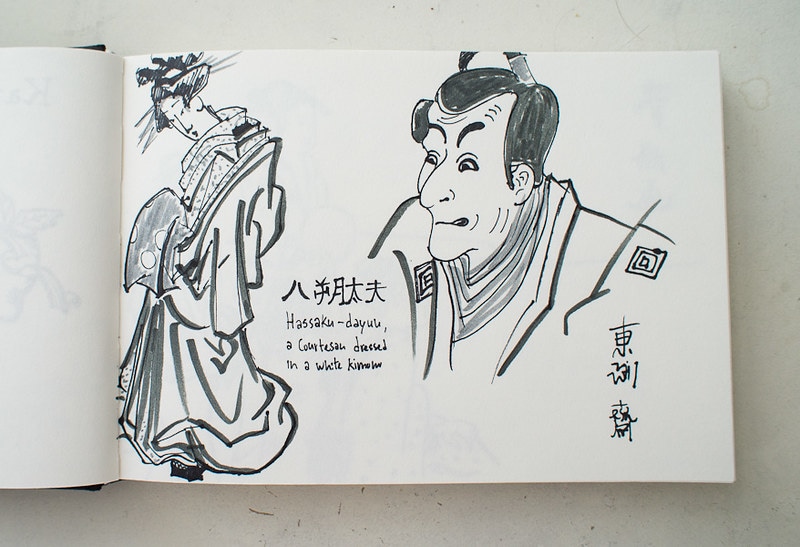 八朔太夫
Hassaku-dayuu,
a Courtesan dressed
in a white kimono
東洲齋